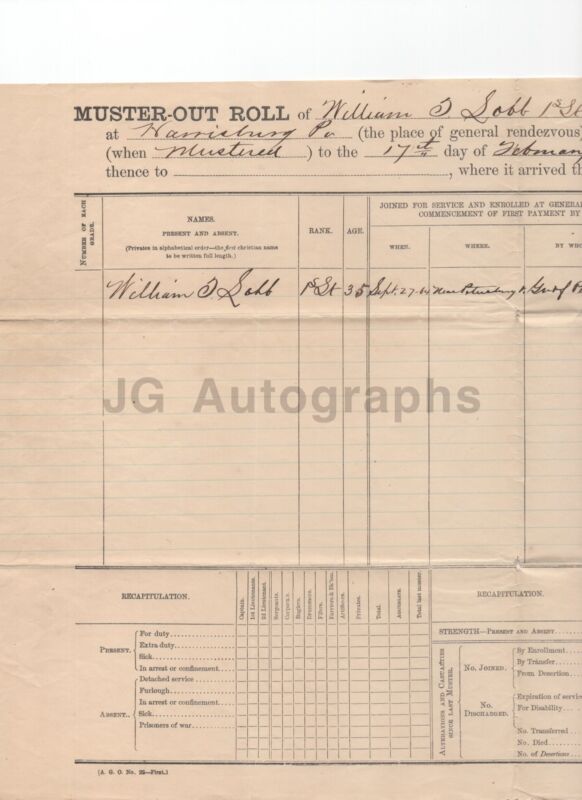 MUSTER-OUT ROLL of William T Lobb 1st St
at Harrisburg Pa (the place of general rendezvous
(when Mustered) to the 17th day of February
thence to , where it arrived th
NUMBER OF EACH GRADE.
NAMES.
PRESENT AND ABSENT.
(Privates in alphabetical order—the first christian name
to be written full length.)
RANK.
AGE.
JOINED FOR SERVICE AND ENROLLED AT GENERA
COMMENCEMENT OF FIRST PAYMENT BY
WHEN.
WHERE.
BY WHO
William T. Lobb 1st St 35 Sept. 27. 64 Near Petersburg Va Gov of
JG Autographs
RECAPITULATION.
Captain.
1st Lieutenants.
2d Lieutenant.
Sergeants.
Corporals.
Buglers.
Drummers.
Fifers.
Farriers & Bk'ton.
Artificers.
Privates.
Total.
Aggregate.
Total last muster.
PRESENT.
For duty
Extra duty
Sick
In arrest or confinement
ABSENT.
Detached service
Furlough
In arrest or confinement
Sick
Prisoners of war
RECAPITULATION.
STRENGTH—PRESENT AND ABSENT
ALTERATIONS AND CASUALTIES
SINCE LAST MUSTER.
No. JOINED.
By Enrollment
By Transfer
From Desertion
No.
DISCHARGED.
Expiration of servic
For Disability
No. Transferred
No. Died
No. of Desertions
[A. G. O. No. 25—First.]